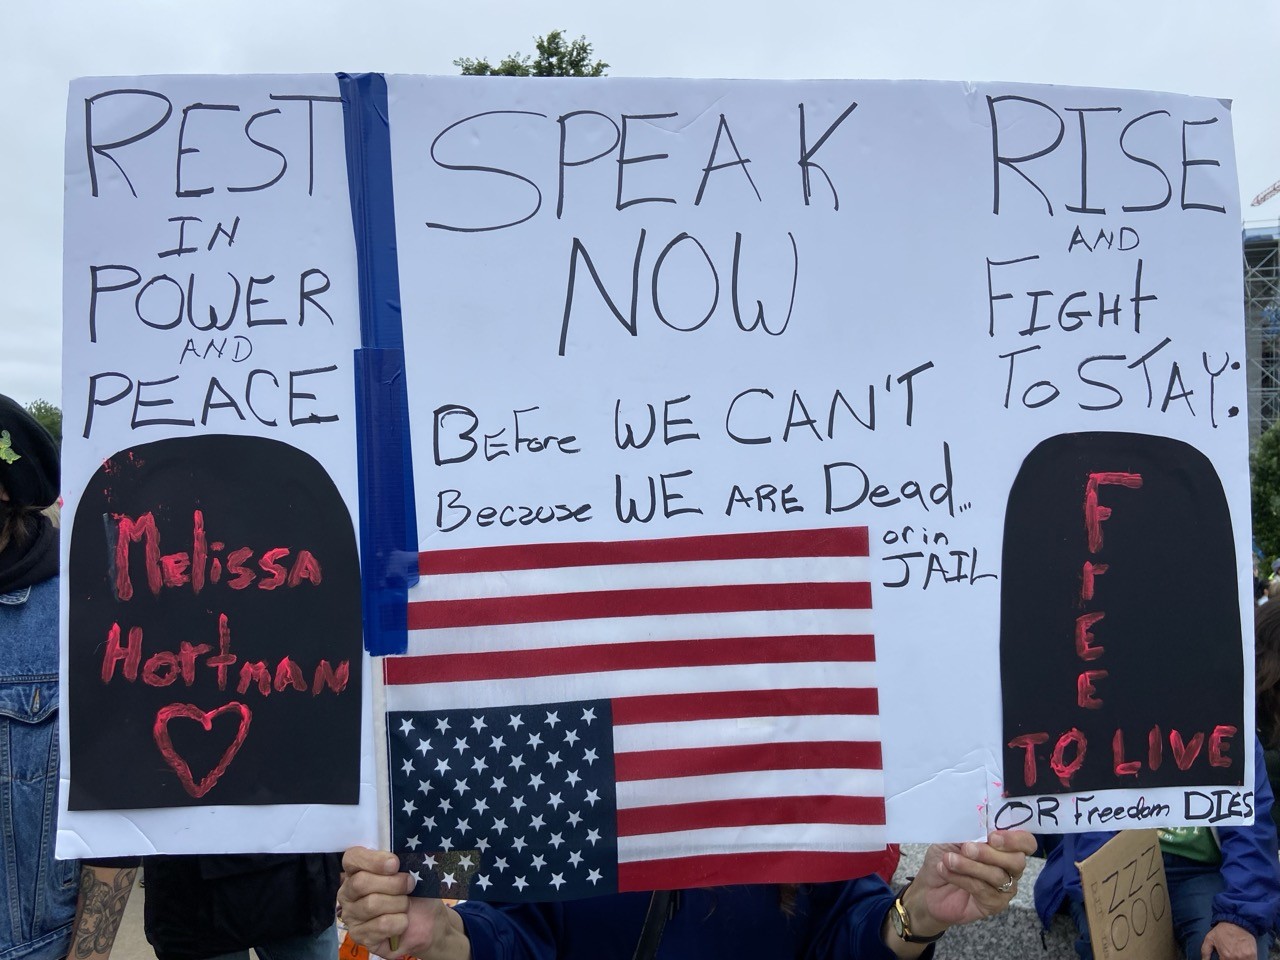 REST
IN
POWER
AND
PEACE
Melissa
Hortman
SPEAK
NOW
BEFore WE CAN'T
Because WE ARE Dead...
or in
JAIL
RISE
AND
FIGHt
To STAY:
FrEE
TO LIVE
OR Freedom DIES